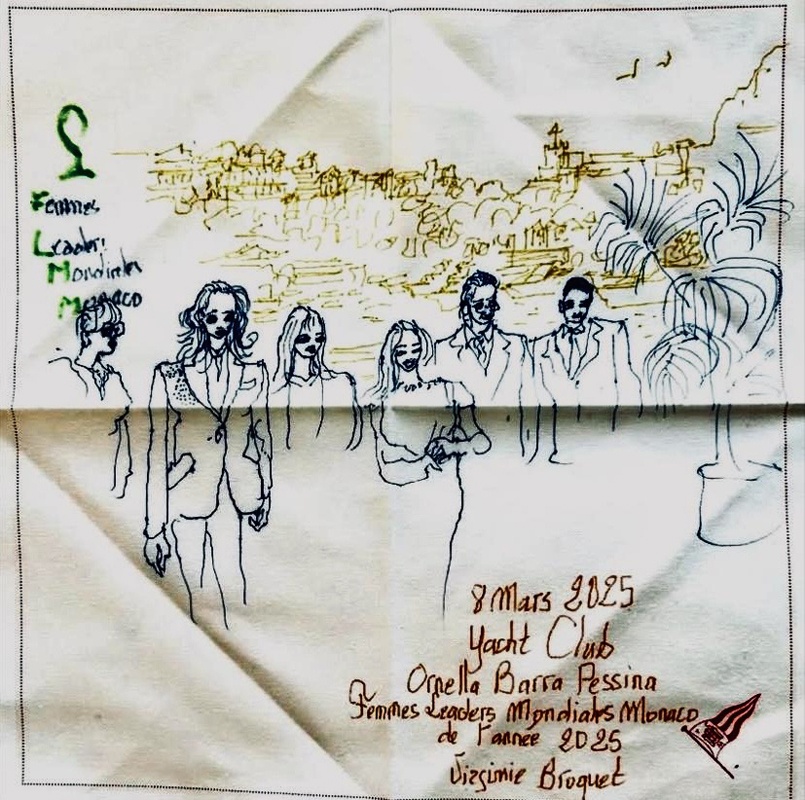 Femmes
Leaders
Mondiales
Monaco
8 Mars 2025
Yacht Club
Ornella Barra Pessina
Femmes Leaders Mondiales Monaco
de l'année 2025
Virginie Broquet